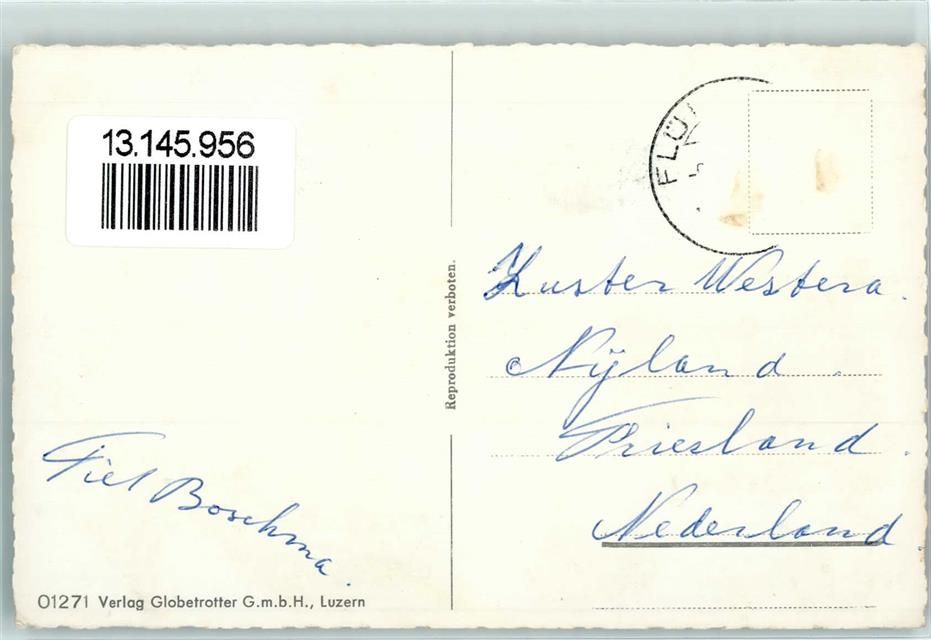 13.145.956
FLÜ
Reproduktion verboten.
Kuster Westera.
Nijland.
Friesland.
Nederland.
Fiet Boschma.
01271 Verlag Globetrotter G.m.b.H., Luzern